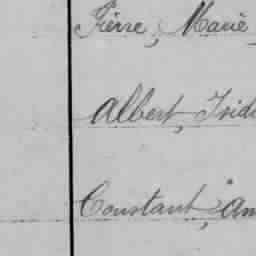 Pierre, Marie
Albert, Isid
Constant, am